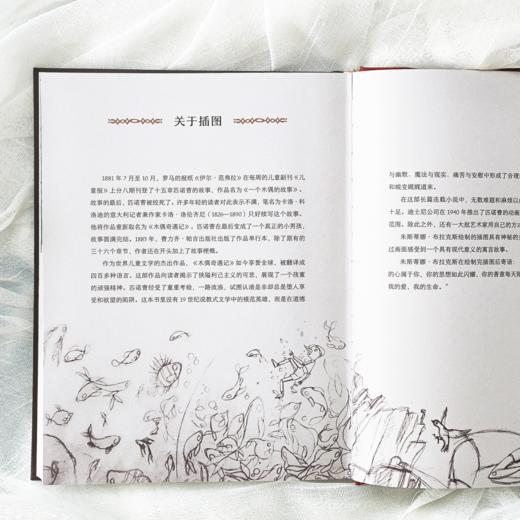 关于插图
1881 年 7 月至 10 月，罗马的报纸《伊尔·范弗拉》在每周的儿童副刊《儿
童报》上分八期刊登了十五章匹诺曹的故事，作品名为《一个木偶的故事》。
故事的最后，匹诺曹被绞死了。许多年轻的读者对此表示不满，笔名为卡洛·科
洛迪的意大利记者兼作家卡洛·洛伦齐尼（1826—1890）只好续写这个故事。
他将作品重新取名为《木偶奇遇记》。匹诺曹在最后变成了一个真正的小男孩，
故事圆满完结。1883年，费力齐·帕吉出版社出版了作品单行本，除了原有的
三十六个章节，作者还在开头加上了故事梗概。
作为世界儿童文学的杰出作品，《木偶奇遇记》如今享誉全球，被翻译成
四百多种语言。这部作品向读者揭示了狭隘利己主义的可悲，展现了一个孩童
的顽强精神。匹诺曹经受了重重考验，一路流浪，试图认清是非却总是堕入享
受和欲望的陷阱。这本书里没有 19 世纪说教式文学中的模范英雄，而是在道德
与幽默、魔法与现实、痛苦与安慰中形成了合理
和嬗变娓娓道来。
在这部长篇连载小说中，无数难题和麻烦以
十足。迪士尼公司在 1940 年推出了匹诺曹的动画
范围。除此之外，还有一大批艺术家用自己的方
朱斯蒂娜·布拉克斯绘制的插图具有神秘的
过画面感受到一个具有现代意义的寓言故事。
朱斯蒂娜·布拉克斯在绘制完插图后寄语：
的心属于你，你的思想如此闪耀，你的善意每天
我的爱，我的生命。”